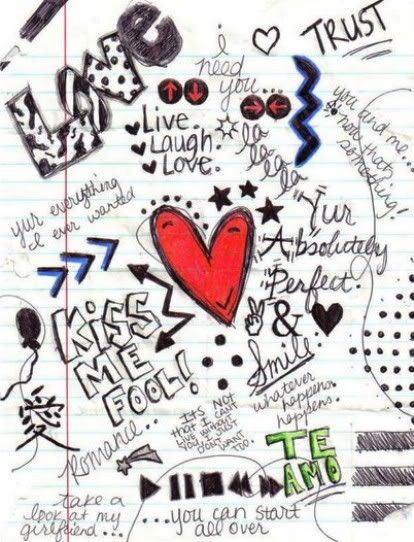 Love
i
need
you...
TRUST
Live.
Laugh.
Love.
la
la
la
la
you and me...
now that's
something!
yur everything
I ever wanted
"Yur
Absolutely
Perfect."
KiSS
ME
FOOL!
&
Smile.
whatever
happens
happens.
爱
Romance...
IT'S NOT
that I CAN'T
LIVE WITHOUT
YOU, I JUST
DON'T WANT
TOO.
TE
AMO
take a
look at my
girlfriend...
...you can start
all over